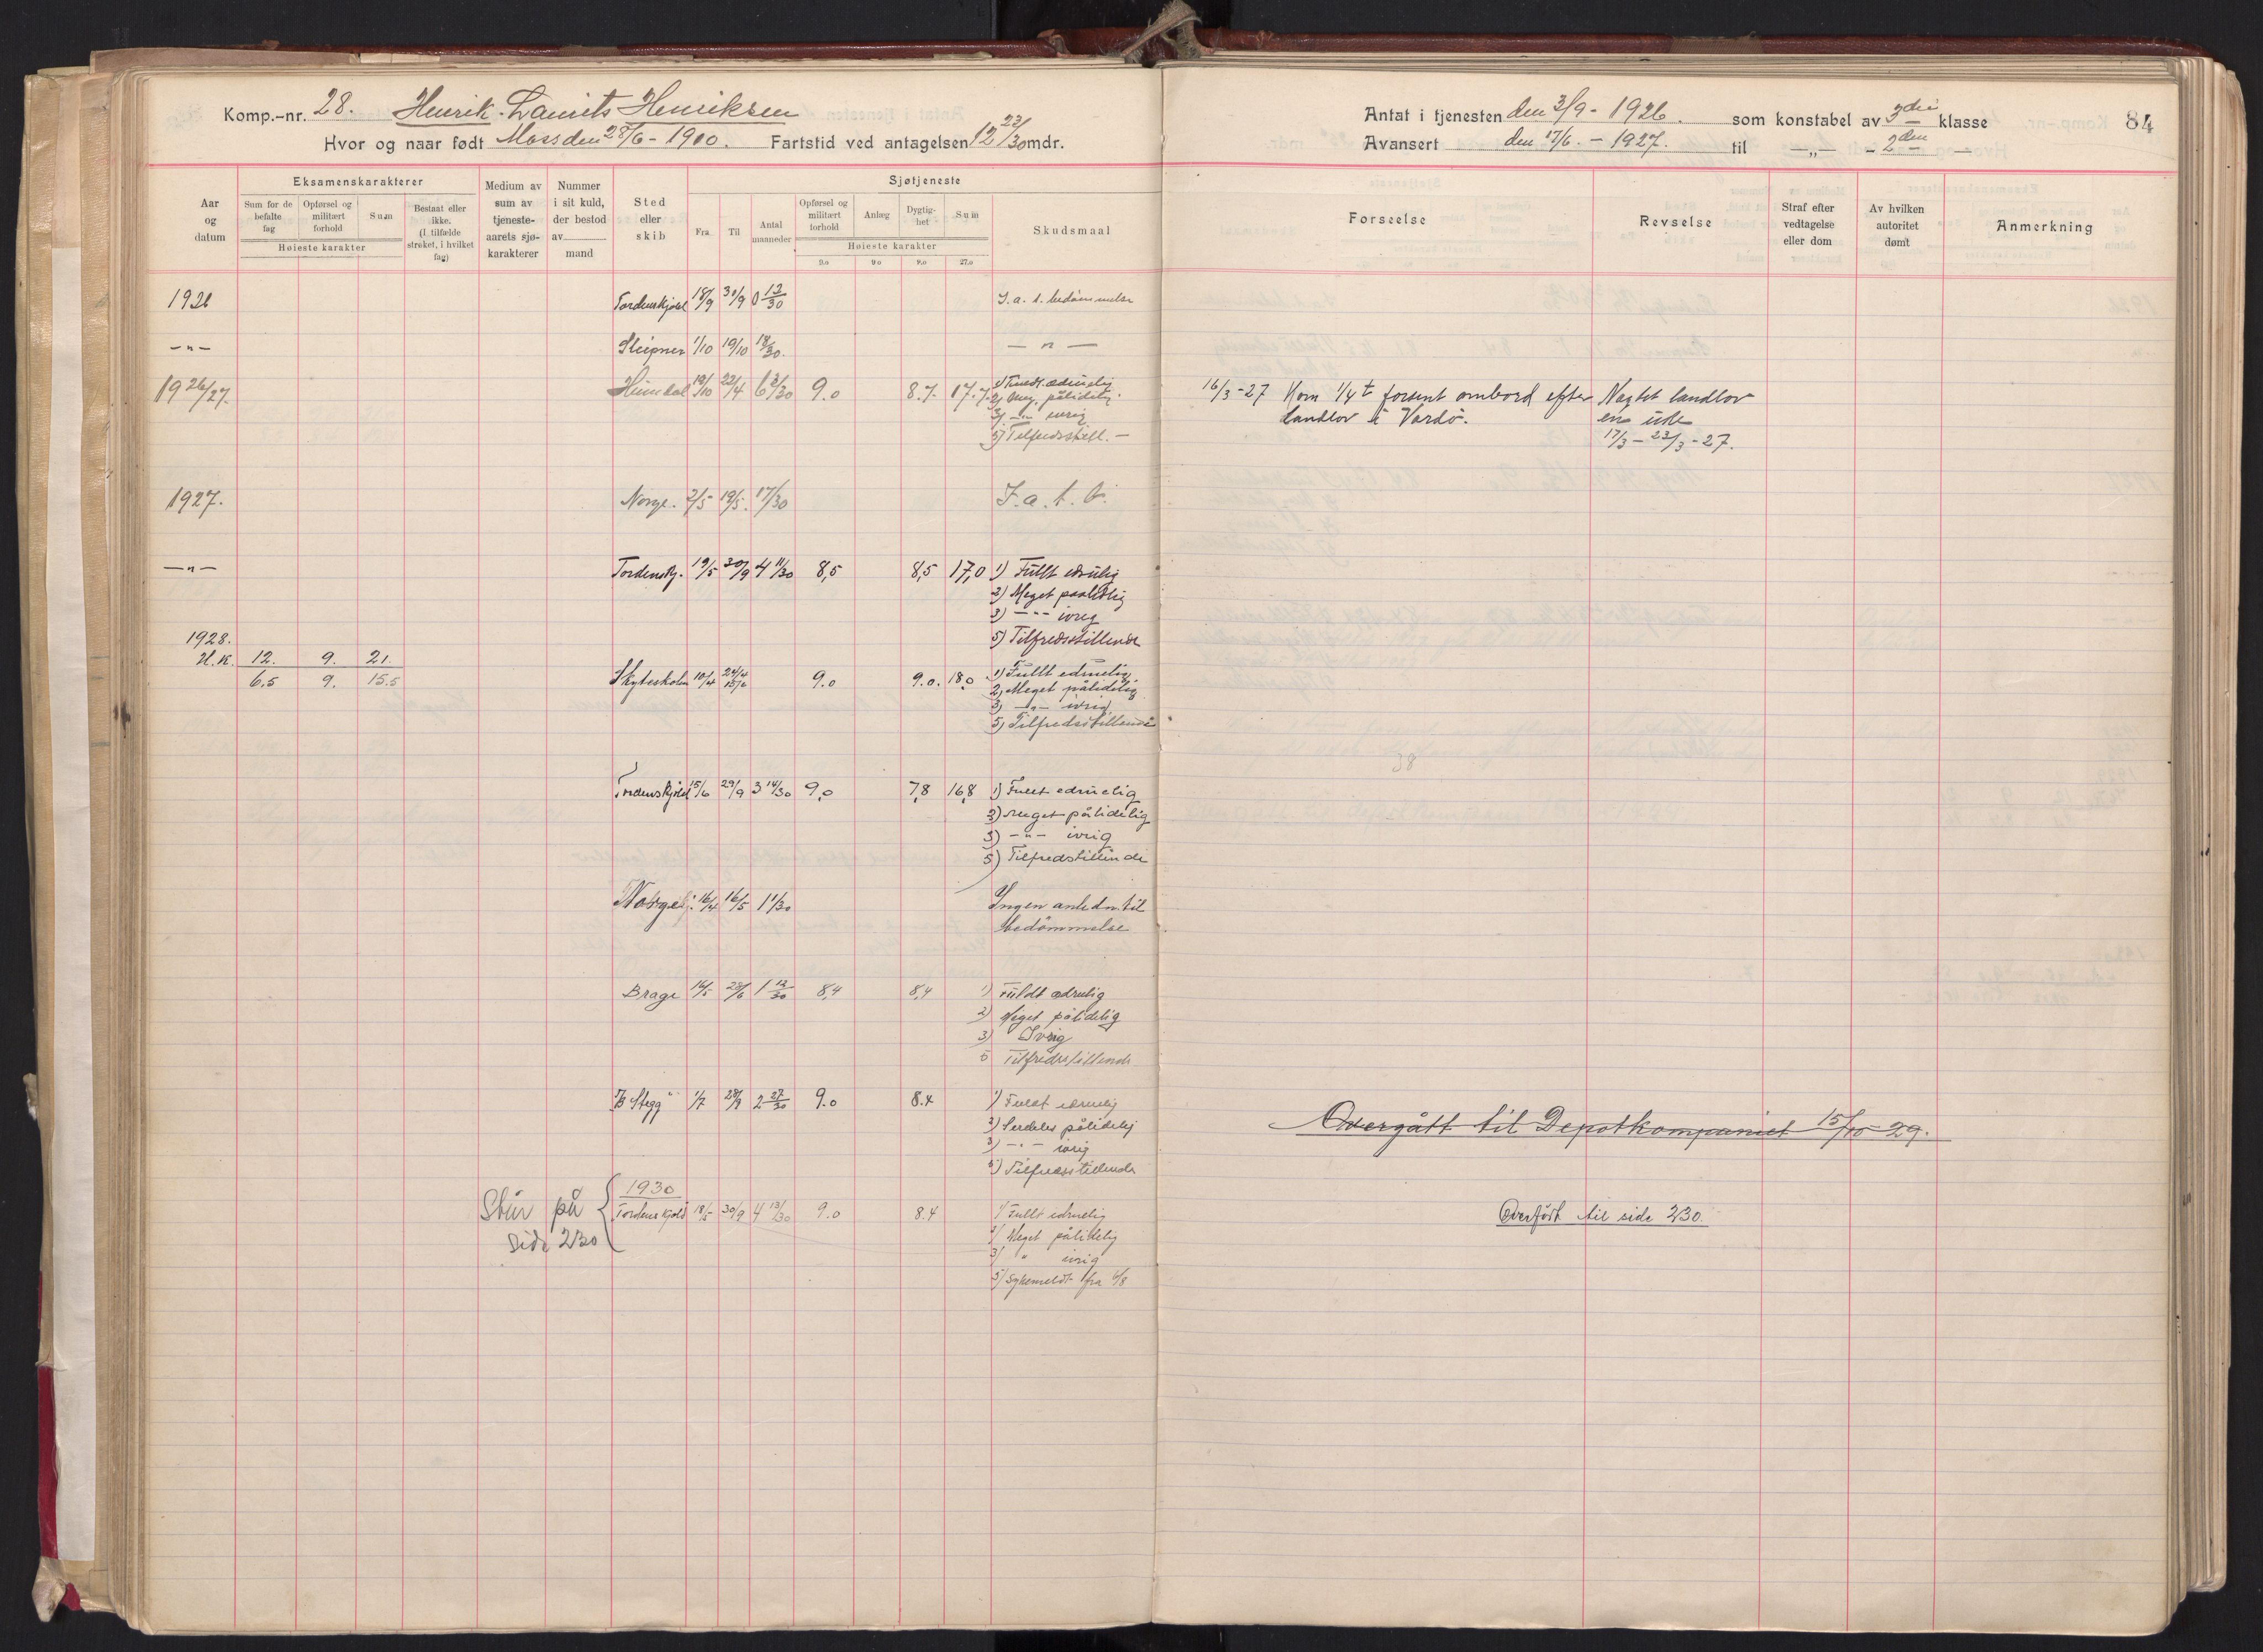 Komp.-nr. 28. Henrik Laurits Henriksen
Hvor og naar født Moss den 28/6 - 1900. Fartstid ved antagelsen 12 23/30 mdr.
Aar og datum
Eksamenskarakterer
Sum for de befalte fag
Opførsel og militært forhold
Sum
Høieste karakter
Bestaat eller ikke. (I tilfælde strøket, i hvilket fag)
Medium av sum av tjeneste-aarets sjø-karakterer
Nummer i sit kuld, der bestod av mand
Sted eller skib
Sjøtjeneste
Fra
Til
Antal maaneder
Opførsel og militært forhold
Anlæg
Dygtig-het
Sum
Høieste karakter
9.0 9.0 9.0 27.0
Skudsmaal
1926 Tordenskjold 18/9 30/9 0 13/30 I. a. t. bedømmelse
—"— Sleipner 1/10 19/10 18/30. — " —
1926/27. Heimdal 19/10 22/4 6 3/30 9.0 8.7. 17.7. 1) Fuldt ædruelig
2) Meg. pålidelig.
3) —"— ivrig
5) Tilfredsstill. —
1927. Norge. 2/5 19/5. 17/30 I. a. t. b.
—"— Tordenskj. 19/5 30/9 4 11/30 8,5 8,5 17,0 1) Fullt edrulig
2) Meget paalidlig
3) —"— ivrig
5) Tilfredsstillende
1928.
H.K. 12. 9. 21.
6.5 9. 15.5
Skyteskolen 10/4 24/4 15/6 9.0 9.0. 18.0 1) Fullt edruelig.
2) Meget pålidelig
3) —"— ivrig
5) Tilfredsstillende
Tordenskjold 15/6 29/9 3 14/30 9,0 7,8 16,8 1) Fullt edruelig
2) Meget pålidelig
3) —"— ivrig
5) Tilfredstillende
Norge 16/4 16/5 1 1/30 Ingen anledn. til
bedømmelse
Brage 16/5 28/6 1 12/30 8,4 8,4 1) Fuldt ædruelig
2) Meget pålidelig
3) Ivrig
5 Tilfredsstillende
T/B "Stegg" 1/7 28/9 2 27/30 9.0 8.4 1) Fuldt edruelig
2) Serdeles pålidelig
3) —"— ivrig
5) Tilfredsstillende
1930
Står på Tordenskjold 18/5 30/9 4 13/30 9.0 8.4 1/ Fullt edruelig
side 230 2/ Meget pålidelig
3/ " ivrig
5/ Sykemeldt fra 6/8
Antat i tjenesten den 3/9 - 1926. som konstabel av 3die klasse 84
Avansert den 17/6. - 1927. til —„— - 2den —
Forseelse
Revselse
Straf efter vedtagelse eller dom
Av hvilken autoritet dømt
Anmerkning
16/3-27 Kom 1/4 t forsent ombord efter Nægtet landlov
landlov i Vardø. en uke
17/3 — 23/3 - 27.
38
Overgått til Depotkompaniet 15/10-29.
Overført til side 230.